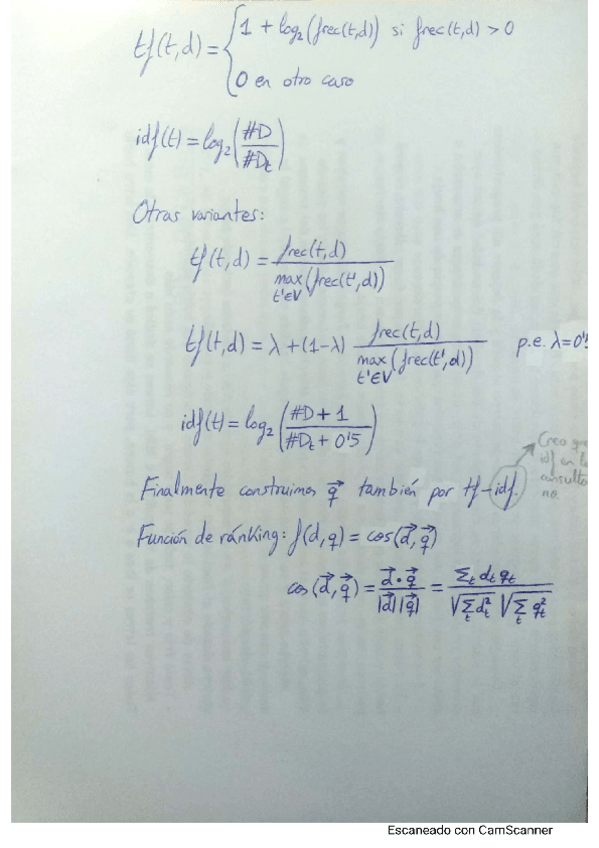 tf(t,d) = { 1 + log₂(frec(t,d)) si frec(t,d) > 0
0 en otro caso
idf(t) = log₂(#D / #Dₜ)
Otras variantes:
tf(t,d) = frec(t,d) / max_{t'∈V}(frec(t',d))
tf(t,d) = λ + (1-λ) frec(t,d) / max_{t'∈V}(frec(t',d)) p.e. λ=0'5
idf(t) = log₂(#D + 1 / #Dₜ + 0'5)
Creo que
idf en la
consulta
no.
Finalmente construimos q⃗ también por tf-idf.
Función de ránking: f(d,q) = cos(d⃗,q⃗)
cos(d⃗,q⃗) = d⃗•q⃗ / |d⃗||q⃗| = Σₜ dₜ qₜ / √(Σₜ dₜ²) √(Σₜ qₜ²)
Escaneado con CamScanner